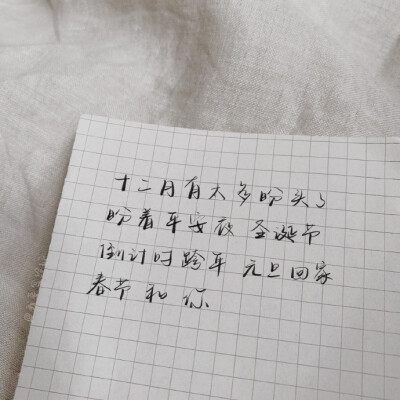 十二月有太多盼头了
盼着平安夜 圣诞节
倒计时跨年 元旦回家
春节和你